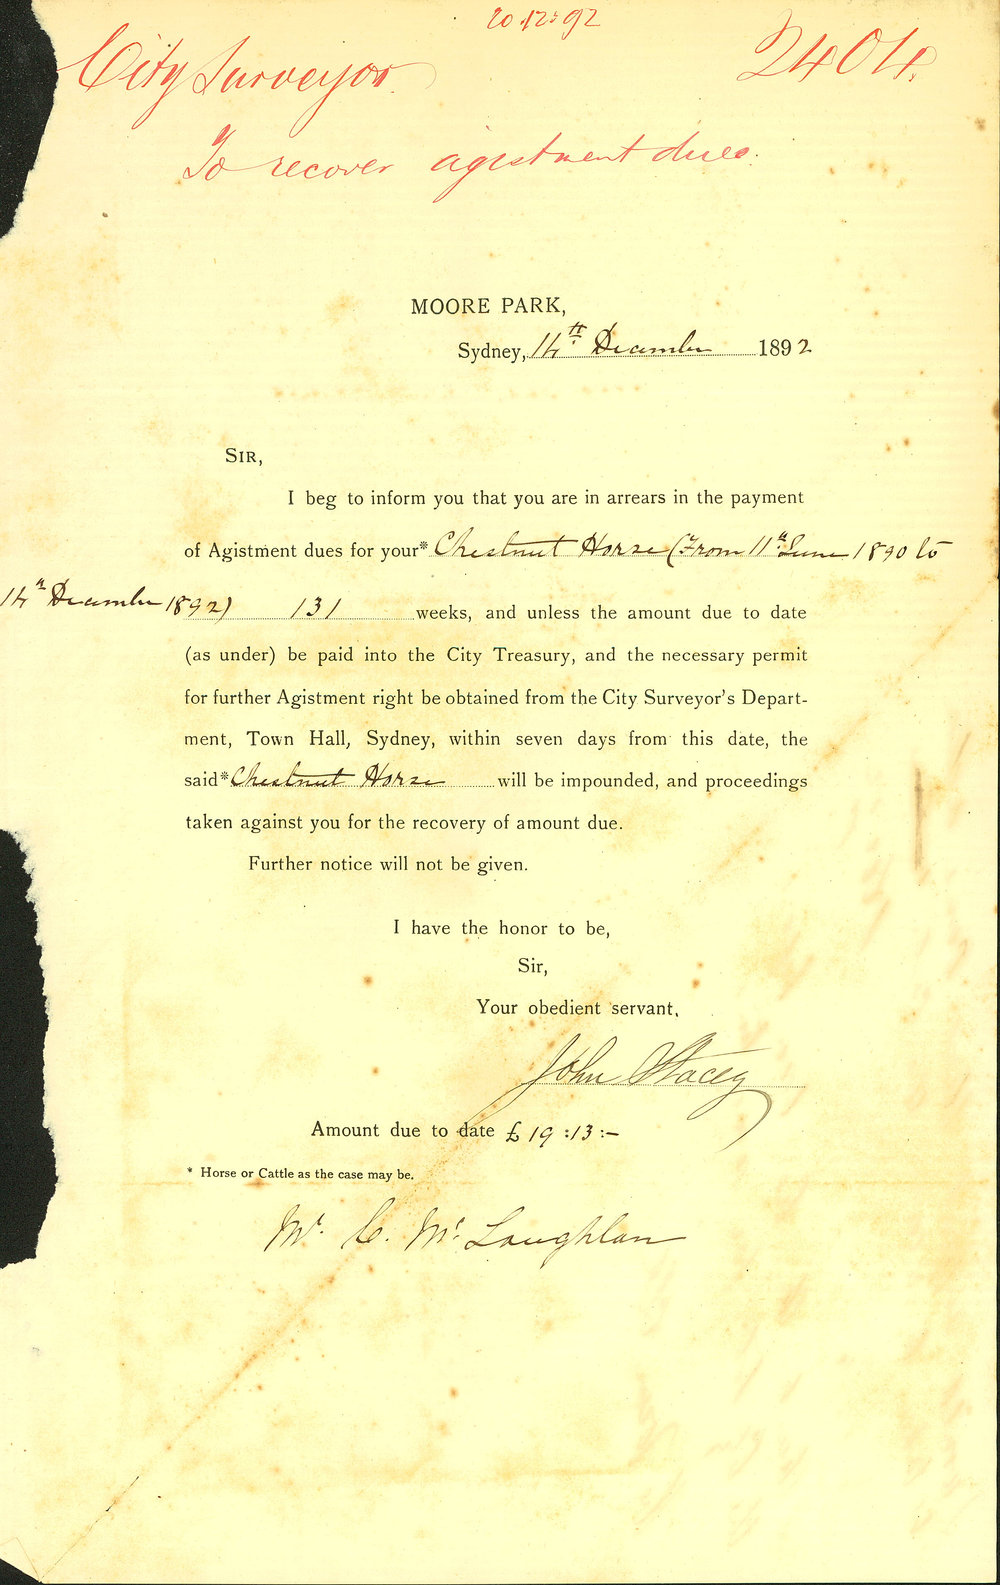 20.12.92
City Surveyor 2404
To recover agistment dues.
MOORE PARK,
Sydney, 14th December 1892
SIR,
I beg to inform you that you are in arrears in the payment
of Agistment dues for your* Chestnut Horse (From 11th June 1890 to
14th December 1892) 131 weeks, and unless the amount due to date
(as under) be paid into the City Treasury, and the necessary permit
for further Agistment right be obtained from the City Surveyor's Depart-
ment, Town Hall, Sydney, within seven days from this date, the
said* Chestnut Horse will be impounded, and proceedings
taken against you for the recovery of amount due.
Further notice will not be given.
I have the honor to be,
Sir,
Your obedient servant,
John Stacey
Amount due to date £ 19:13:-
* Horse or Cattle as the case may be.
Mr. C. Mc Loughlan